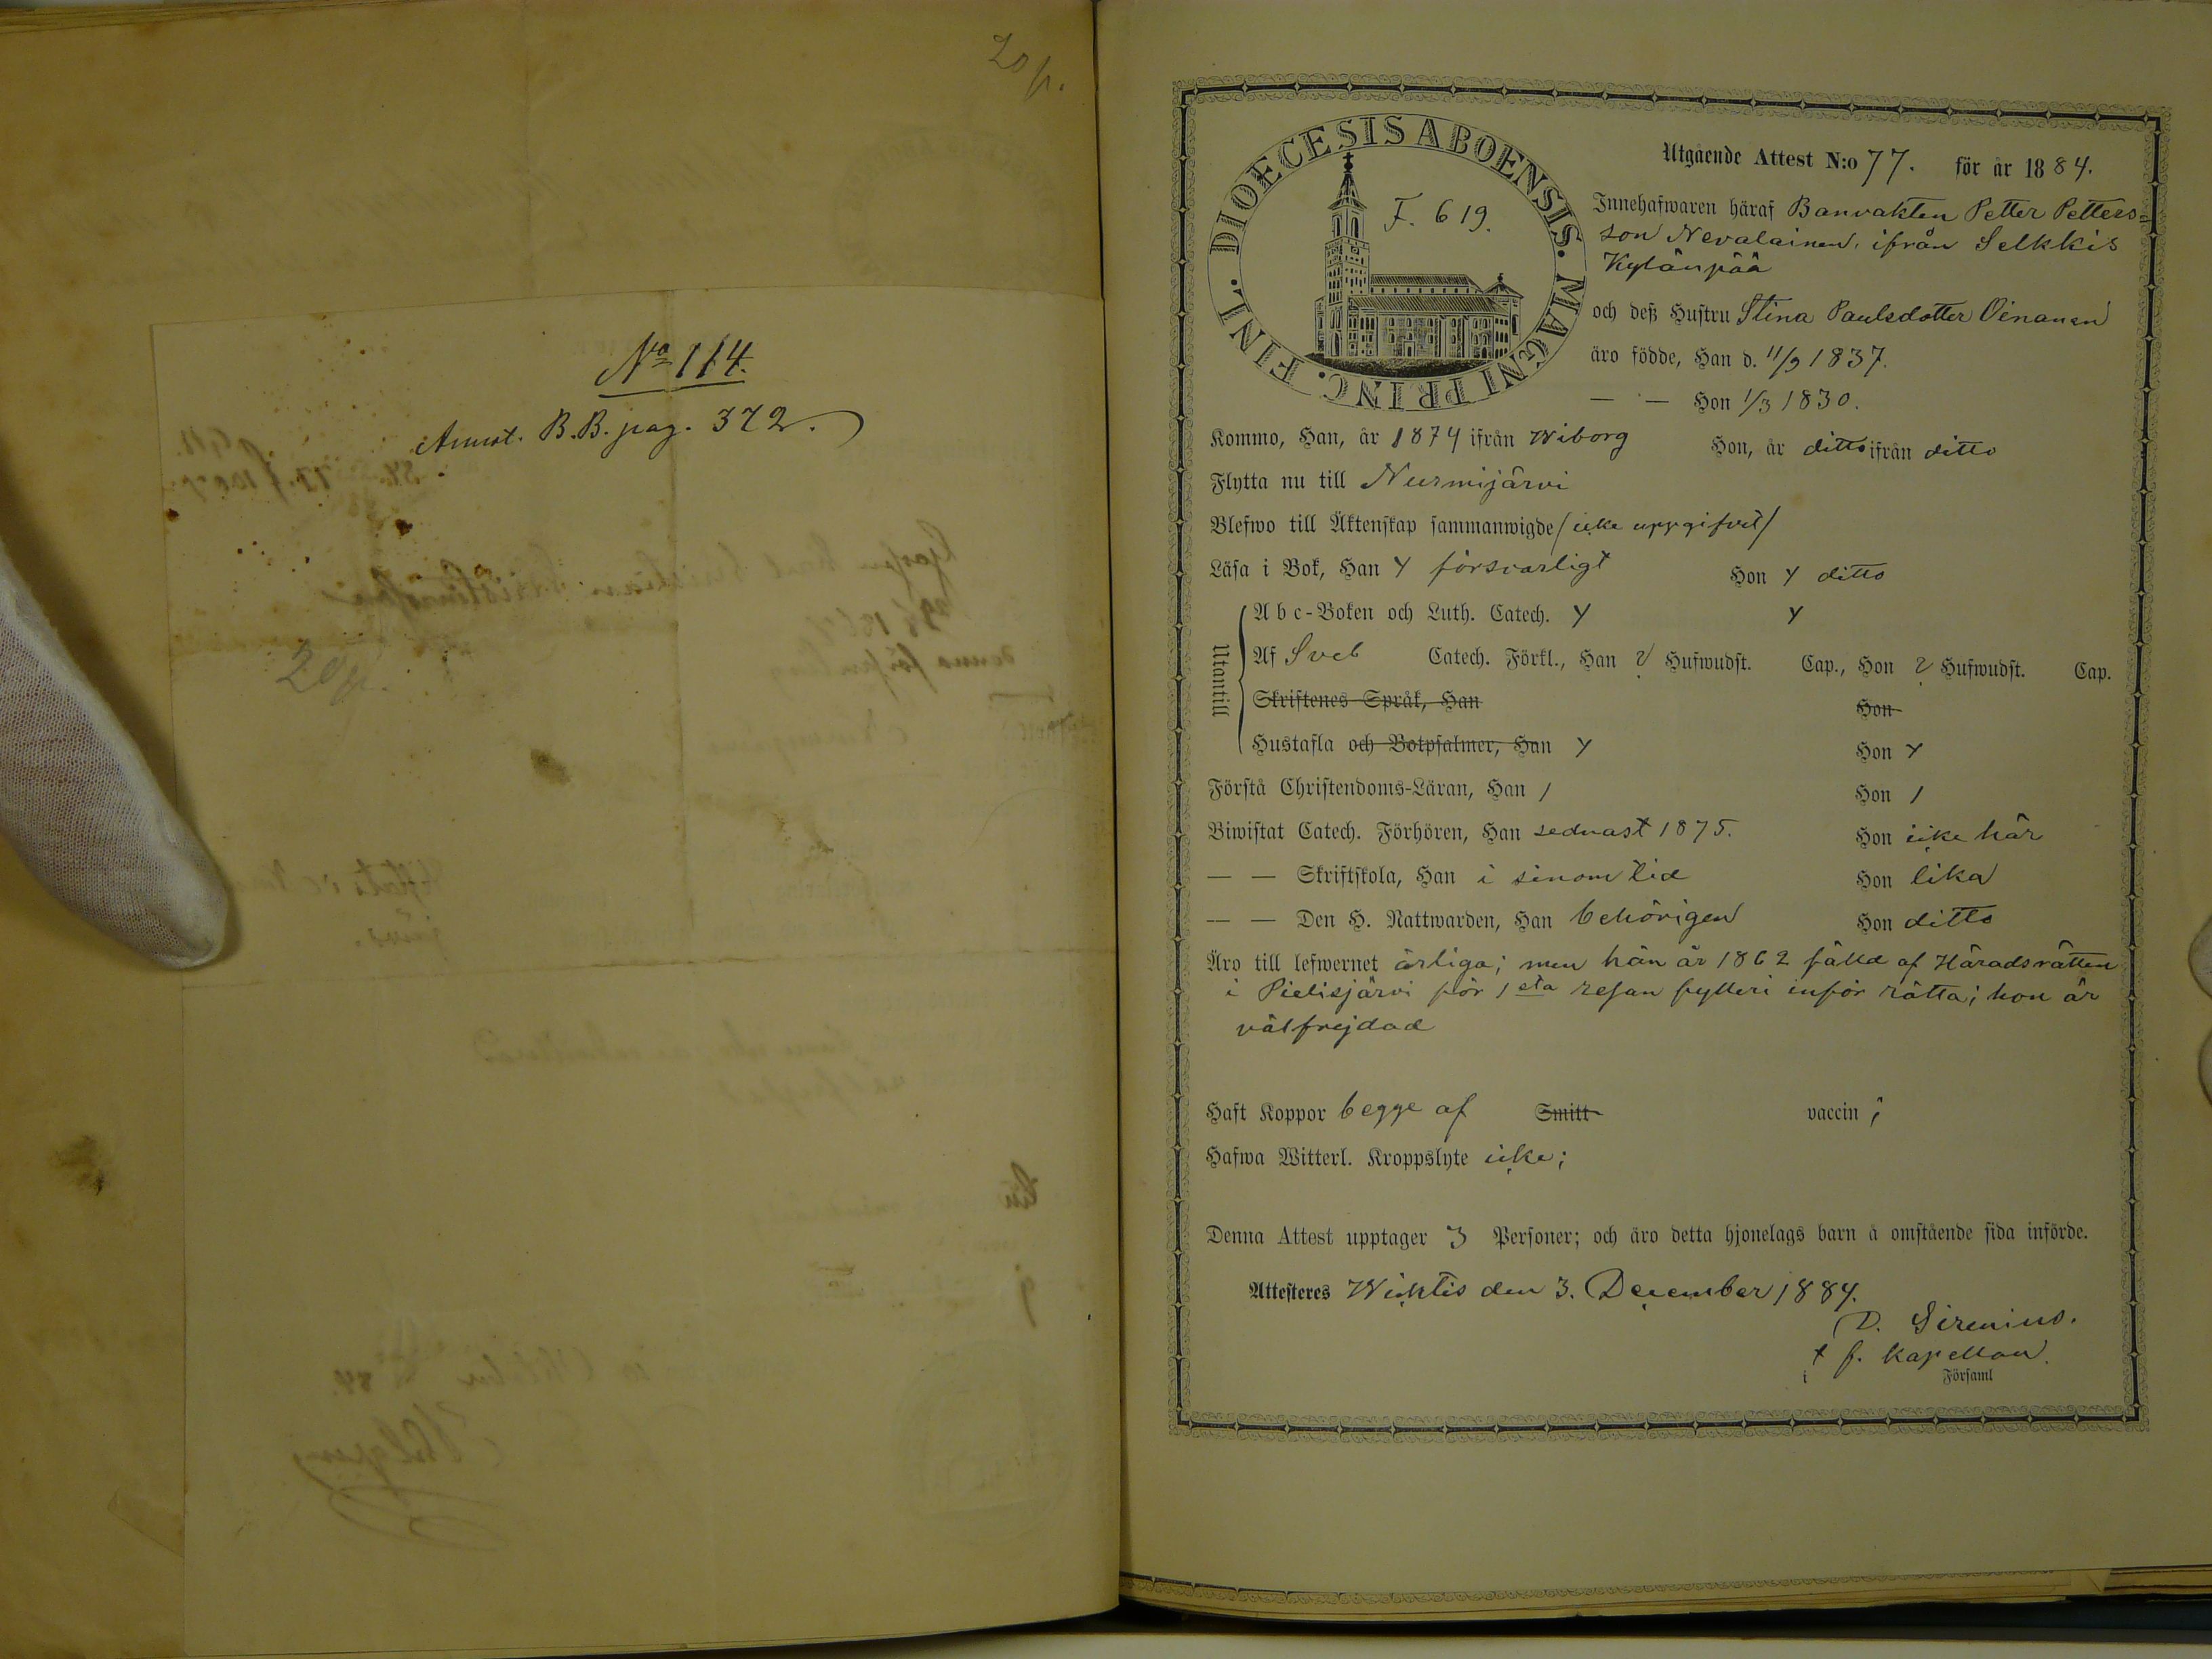 20 p.
No 114.
Annot. B.B. pag. 372.
20 p.
DIOECESIS ABOENSIS. MAGNI PRINC. FINL.
F. 619.
Utgående Attest N:o 77. för år 1884.
Innehafwaren häraf Banvakten Petter Petters=
son Nevalainen, ifrån Selkkis
Kylänpää
och deß Hustru Stina Paulsdotter Oinanen
äro födde, Han d. 11/9 1837.
— — Hon 1/3 1830.
Kommo, Han, år 1874 ifrån Wiborg Hon, år ditto ifrån ditto
Flytta nu till Nurmijärvi
Blefwo till Äktenskap sammanwigde /icke uppgifvet/
Läsa i Bok, Han Y försvarligt Hon Y ditto
Utantill
Abc-Boken och Luth. Catech. Y Y
Af Sveb Catech. Förkl., Han Hufwudst. Cap., Hon Hufwudst. Cap.
Skriftenes Språk, Han Hon
Hustafla och Botpsalmer, Han Y Hon Y
Förstå Christendoms-Läran, Han / Hon /
Biwistat Catech. Förhören, Han sednast 1875. Hon icke här
— — Skriftskola, Han i sinom tid Hon lika
— — Den H. Nattwarden, Han behörigen Hon ditto
Äro till lefwernet ärliga; men han är 1862 fälld af Häradsrätten
i Pielisjärvi för 1sta resan fylleri inför rätta; hon är
välfrejdad
Haft Koppor begge af Smitt vaccin;
Hafwa Witterl. Kroppslyte icke;
Denna Attest upptager 3 Personer; och äro detta hjonelags barn å omstående sida införde.
Attesteres Wichtis den 3. December 1884.
D. Sirenius.
t f. Kapellan.
i Församl